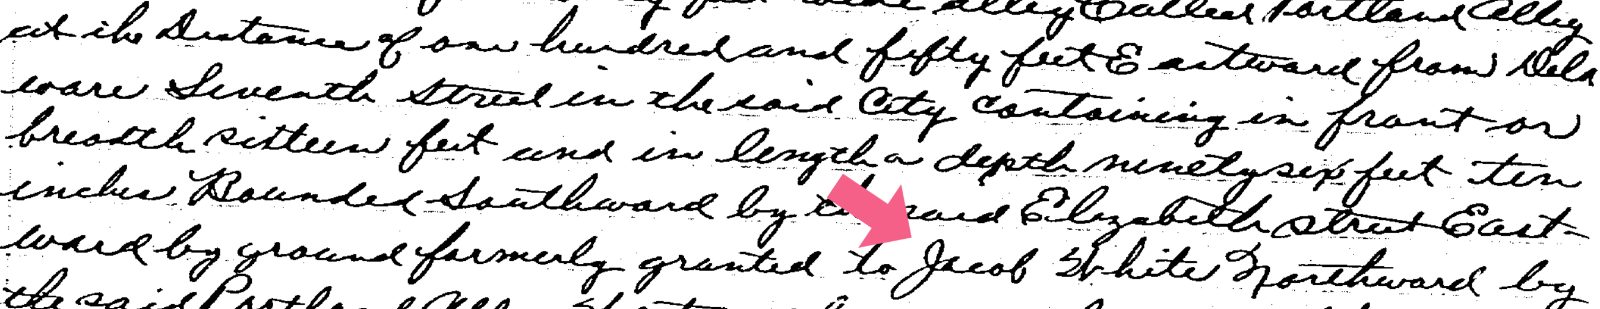 wide alley Called Portland Alley
at the Distance of one hundred and fifty feet Eastward from Dela
ware Seventh Street in the said City containing in front or
breadth sixteen feet and in length or depth ninety six feet ten
inches Bounded Southward by the said Elizabeth street East-
ward by ground formerly granted to Jacob White Northward by
the said Portland Alley